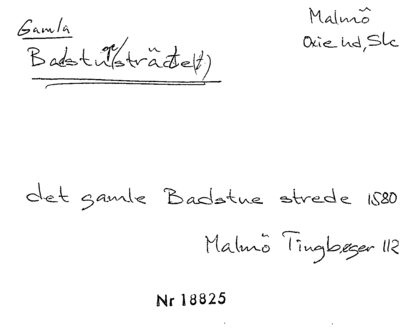 Gamla
Badstugusträdte(t)
Malmö
Oxie hd, Sk
det gamle Badstue strede 1580
Malmö Tingbøger 112
Nr 18825